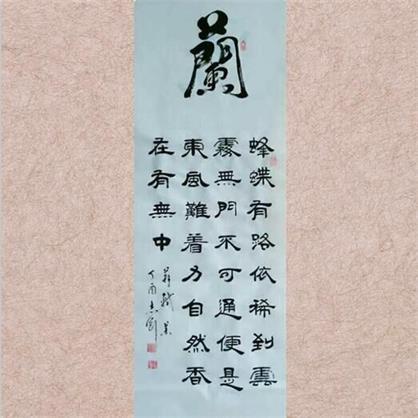 蘭
蜂蝶有路依稀到雲
霧無門不可通便是
東風難着力自然香
在有無中
丁酉